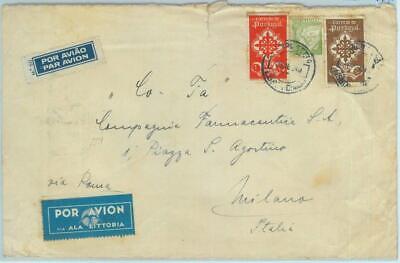 POR AVIÃO
PAR AVION
CORREIO DE
Portugal
Portugal
"Co-Fa"
Compagnia Farmaceutica S. A.
1, Piazza S. Agostino
via Roma
Milano
Italia
POR AVION
VIA ALA LITTORIA